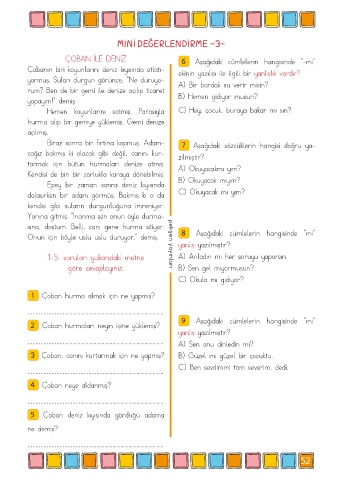 MİNİ DEĞERLENDİRME -3-
ÇOBAN İLE DENİZ
Çobanın biri koyunlarını deniz kıyısında otlatı-
yormuş. Suları durgun görünce, "Ne duruyo-
rum? Ben de bir gemi ile denize açılıp ticaret
yapayım!" demiş.
Hemen koyunlarını satmış. Parasıyla
hurma alıp bir gemiye yüklemiş. Gemi denize
açılmış.
Biraz sonra bir fırtına kopmuş. Adam-
cağız bakmış ki olacak gibi değil, canını kur-
tarmak için bütün hurmaları denize atmış.
Kendisi de bin bir zorlukla karaya dönebilmiş.
Epey bir zaman sonra deniz kıyısında
dolaşırken bir adam görmüş. Bakmış ki o da
kendisi gibi suların durgunluğuna imreniyor.
Yanına gitmiş. "İnanma sen onun öyle durma-
sına, dostum. Belli, canı gene hurma istiyor.
Onun için böyle uslu uslu duruyor." demiş.
1-5. soruları yukarıdaki metne
göre cevaplayınız.
1 Çoban hurma almak için ne yapmış?
2 Çoban hurmaları neyin içine yüklemiş?
3 Çoban, canını kurtarmak için ne yapmış?
4 Çoban neye aldanmış?
5 Çoban deniz kıyısında gördüğü adama
ne demiş?
6 Aşağıdaki cümlelerin hangisinde "-mi"
ekinin yazılışı ile ilgili bir yanlışlık vardır?
A) Bir bardak su verir misin?
B) Hemen gidiyor musun?
C) Hey, çocuk, buraya bakar mı sın?
7 Aşağıdaki sözcüklerin hangisi doğru ya-
zılmıştır?
A) Okuyacakmı yım?
B) Okuyacak mıyım?
C) Okuyacak mı yım?
8 Aşağıdaki cümlelerin hangisinde "mi"
yanlış yazılmıştır?
A) Anladın mı her soruyu yaparsın.
B) Sen gel miyormusun?
C) Okula mı gidiyor?
9 Aşağıdaki cümlelerin hangisinde "mi"
yanlış yazılmıştır?
A) Sen onu dinledin mi?
B) Güzel mi güzel bir çocuktu.
C) Ben sevdimmi tam severim, dedi.
52